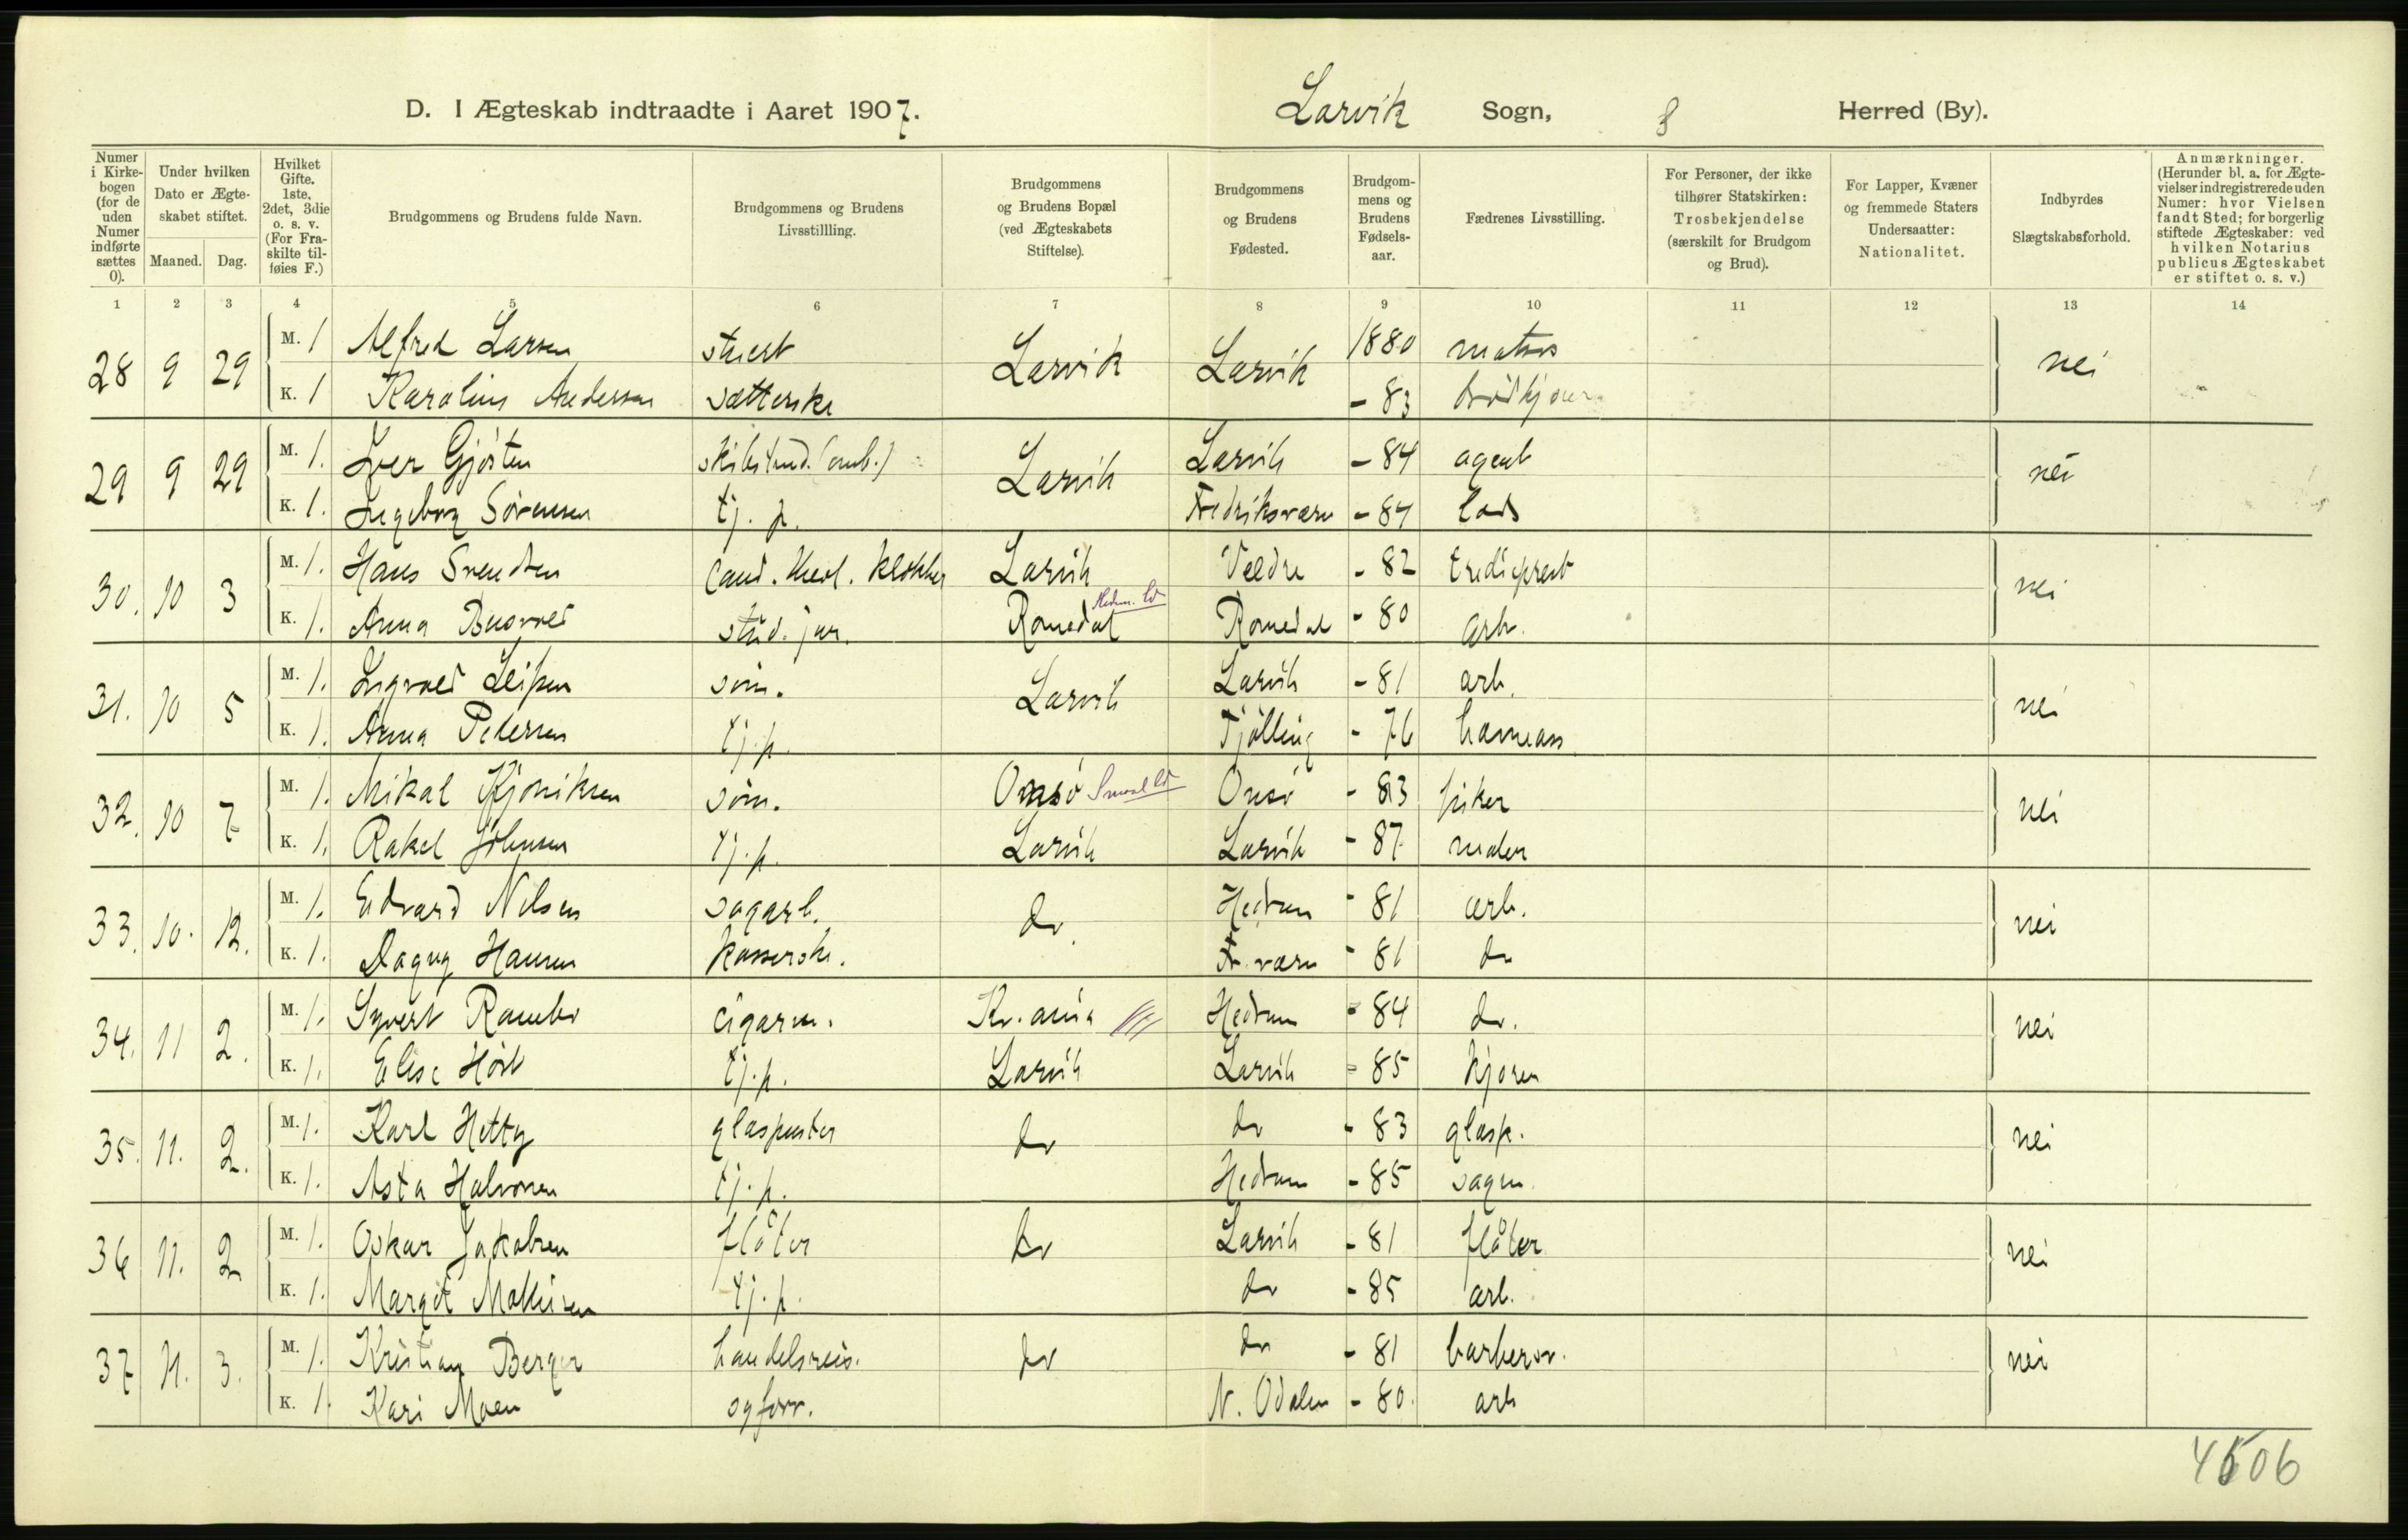 D. I Ægteskab indtraadte i Aaret 1907. Larvik Sogn, 8 Herred (By).
Numer i Kirkebogen (for de uden Numer indførte sættes 0).
Under hvilken Dato er Ægteskabet stiftet.
Maaned. Dag.
Hvilket Gifte. 1ste, 2det, 3die o. s. v. (For Fraskilte tilføies F.)
Brudgommens og Brudens fulde Navn.
Brudgommens og Brudens Livsstillling.
Brudgommens og Brudens Bopæl (ved Ægteskabets Stiftelse).
Brudgommens og Brudens Fødested.
Brudgommens og Brudens Fødselsaar.
Fædrenes Livsstilling.
For Personer, der ikke tilhører Statskirken: Trosbekjendelse (særskilt for Brudgom og Brud).
For Lapper, Kvæner og fremmede Staters Undersaatter: Nationalitet.
Indbyrdes Slægtskabsforhold.
Anmærkninger. (Herunder bl. a. for Ægtevielser indregistrerede uden Numer: hvor Vielsen fandt Sted; for borgerlig stiftede Ægteskaber: ved hvilken Notarius publicus Ægteskabet er stiftet o. s. v.)
1 2 3 4 5 6 7 8 9 10 11 12 13 14
28 9 29 M. 1 Alfred Larsen stuert Larvik Larvik 1880 matros nei
K. 1 Karoline Andersen sætterske - 83
29 9 29 M. 1. Iver Gjøsten Larvik Larvik - 84 agent nei
K. 1. Ingeborg Sørensen tj. p. Fredriksværn - 84 lods
30. 10 3 M. 1. Hans Svendsen cand. theol. klokker Larvik Veldre - 82 nei
K. 1. Anna stud. jur. Romedal Hedm. Romedal - 80 arb.
31. 10 5 M. 1. Ingvald søm. Larvik Larvik - 81 arb. nei
K. 1. Anna Pedersen tj. p. Tjølling - 76
32. 10 7 M. 1. Mikal søm. Onsø Onsø - 83 fisker nei
K. 1. Rakel Johnsen tj. p. Larvik Larvik - 87 maler
33. 10. 12. M. 1. Edvard Nilsen sagarb. do Hedrum - 81 arb. nei
K. 1. Dagny Hansen kasserske. Fr.værn - 81 do
34. 11 2. M. 1. Syvert Rambo cigarm. Kr.ania Hedrum - 84 do. nei
K. 1. Elise Høst tj. p. Larvik Larvik - 85 kjører
35. 11. 2. M. 1. Karl Hetty glaspuster do do - 83 glasp. nei
K. 1. Asta Halvorsen tj. p. Hedrum - 85 sagm.
36 11. 2 M. 1. Oskar Jakobsen flåter do Larvik - 81 flåter nei
K. 1. Margit Mathisen tj. p. do - 85 arb.
37 11. 3. M. 1. Kristian Berger handelsreis. do do - 81 nei
K. 1. Kari Moen syforr. N. Odalen - 80. arb
4506